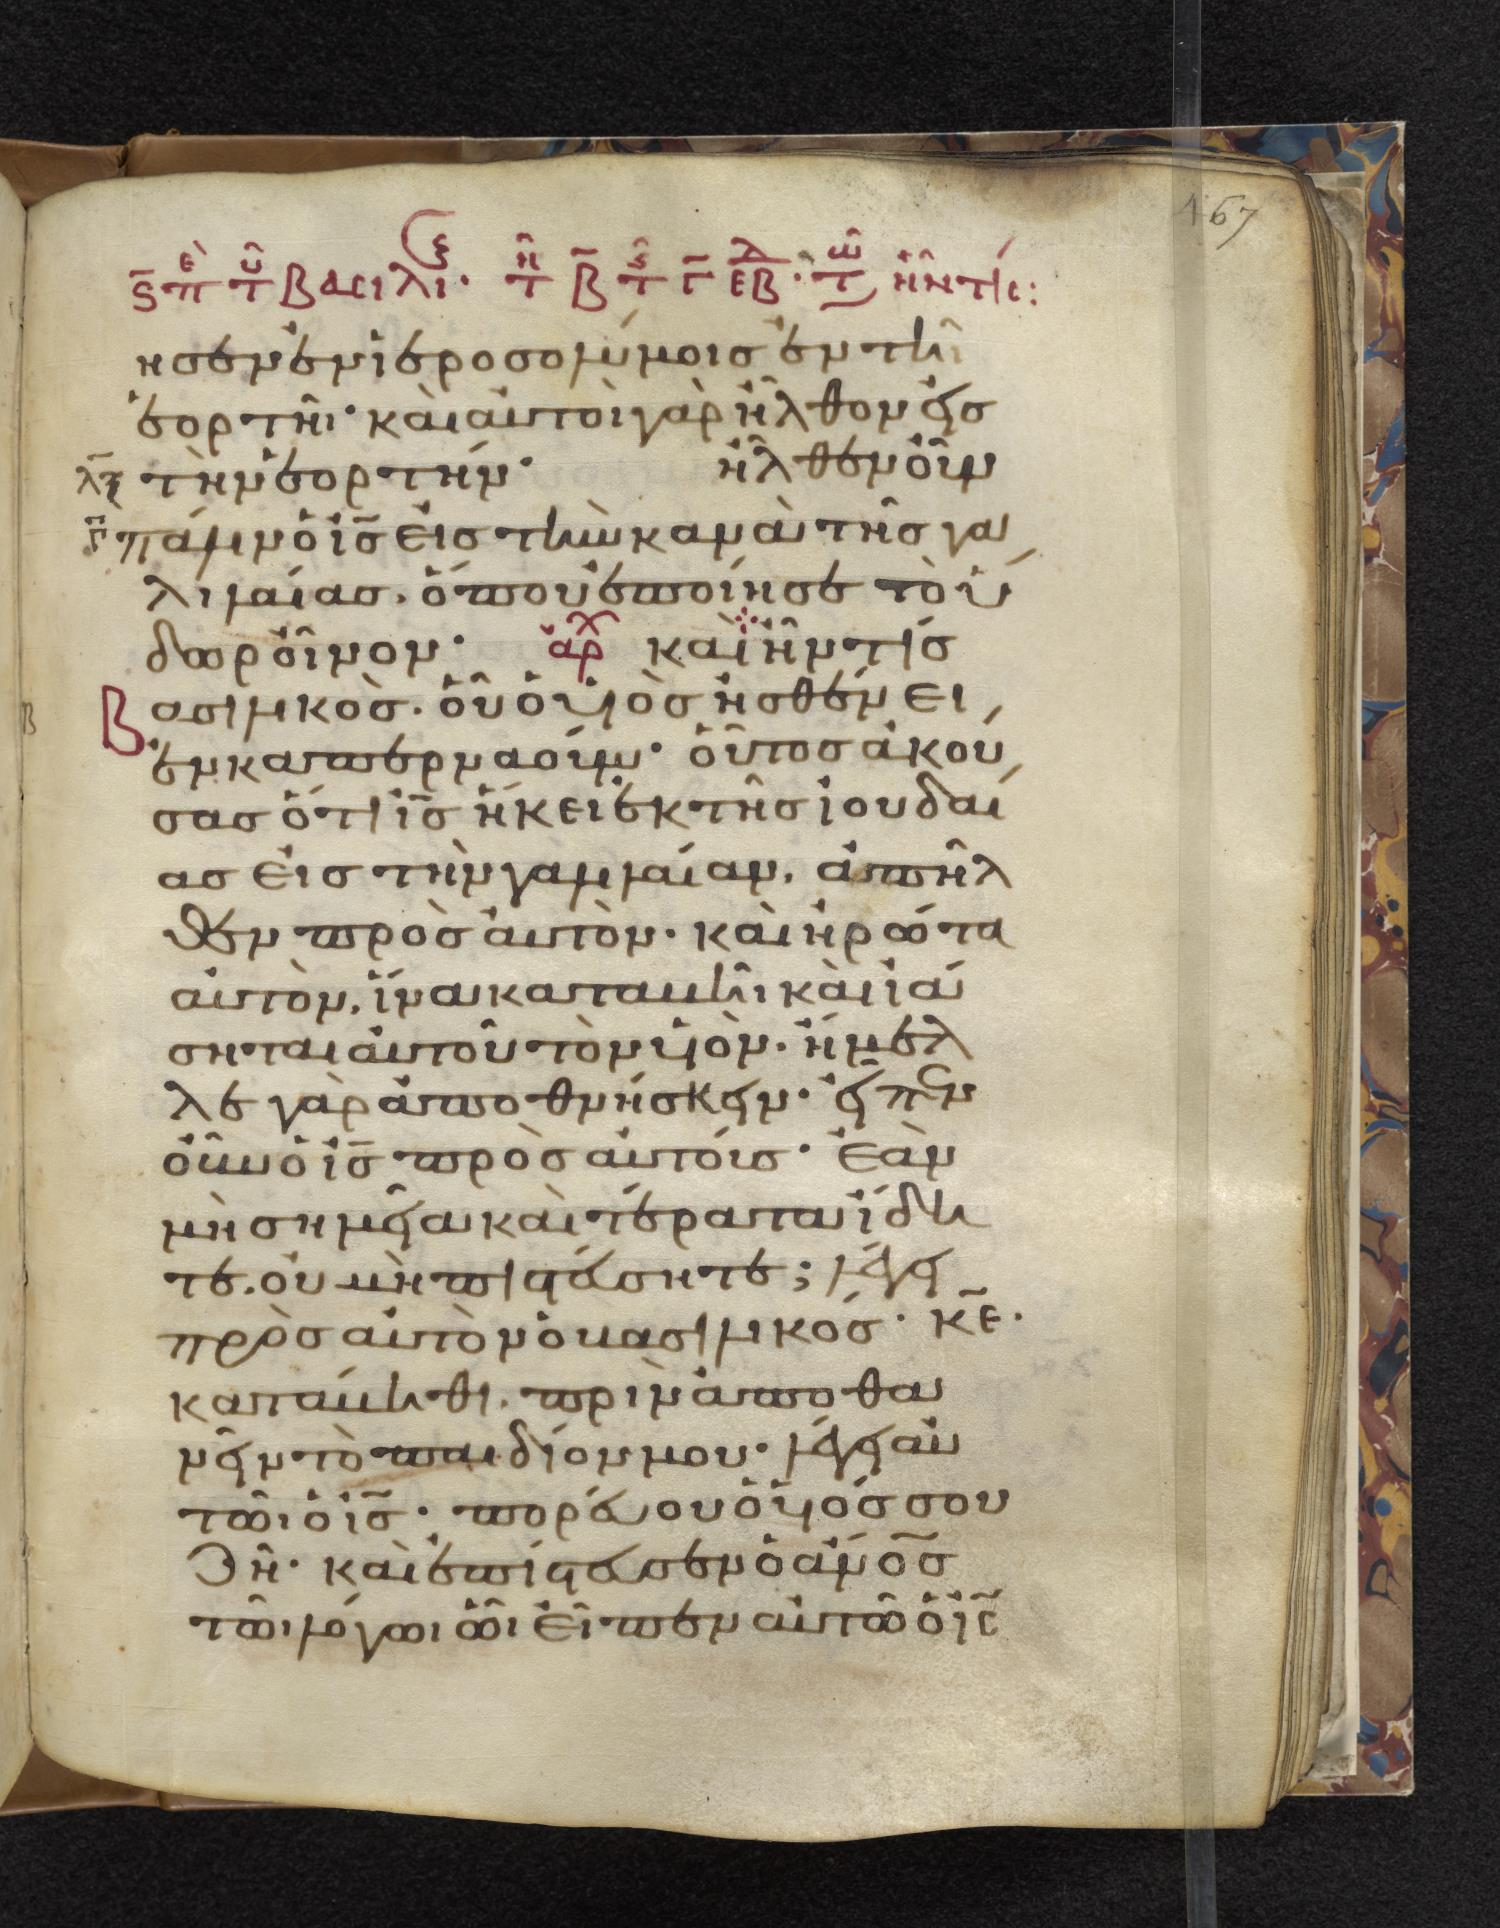 467
ς πε τοῦ βασιλι· τῆ β τς γ εβλ· τῶ ἦν τις:
ησεν ἐν ἱεροσολύμοισ ἐν τῆι
ἑορτῆι· καὶ αὐτοὶ γὰρ ἦλθον εἰσ
λζ τὴν ἑορτήν· ἦλθεν οὖν
γ πάλιν ὁ ισ εἰσ τὴν κανᾶ τῆσ γα
λιλαίασ. ὅπου ἐποίησε τὸ ὕ
δωρ οἶνον· ἀρχ καὶ ἦν τίσ
Β ασιλικὸσ. οὗ ὁ υἱὸσ ἠσθένει
ἐν καπερναούμ· οὗτοσ ἀκού
σασ ὅτι ισ ἥκει ἐκ τῆσ ἰουδαί
ασ εἰσ τὴν γαλιλαίαν, ἀπῆλ
θεν πρὸσ αὐτὸν· καὶ ἠρώτα
αὐτὸν, ἵνα καταβῆι καὶ ἰά
σηται αὐτοῦ τὸν υἱὸν· ἤμελ
λε γὰρ ἀποθνήσκειν· εἶπεν
οὖν ὁ ισ πρὸσ αὐτόν· ἐὰν
μὴ σημεῖα καὶ τέρατα ἴδη
τε. οὐ μὴ πιστεύσητε; λέγει
πρὸσ αὐτὸν ὁ βασιλικόσ· κε·
κατάβηθι. πρὶν ἀποθα
νεῖν τὸ παιδίον μου· λέγει αὐ
τῶι ὁ ισ· πορεύου ὁ υἱόσ σου
ζῆ· καὶ ἐπίστευσεν ὁ ανοσ
τῶι λόγωι ὧι εἶπεν αὐτῶ ὁ ισ